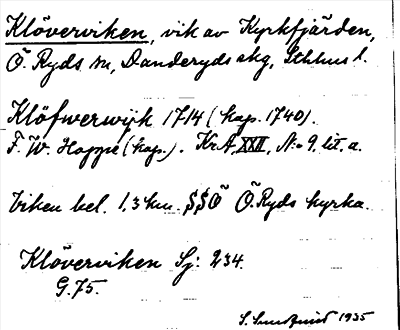 Klöverviken, vik av Kyrkfjärden,
Ö. Ryds sn, Danderyds skg, Sthlms l.
Klöfwerwijk 1714 (kop. 1740).
F. W. Hoppe (kop.). Kr A, XXII, N:o 9, lit. a.
Viken bel. 1,3 km. SSÖ Ö. Ryds kyrka.
Klöverviken Sj: 234.
G. 75.
S. 1935